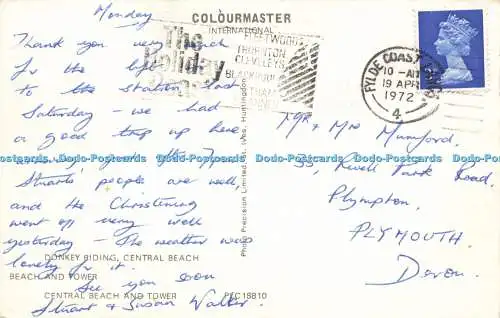 COLOURMASTER
INTERNATIONAL
Monday
Thank you very much
for the lift
to the station last
Saturday - we had
a good trip up here
Stuart's people are well,
and the Christening
went off very well
yesterday - The weather was
lovely for it.
See you soon
Stuart & Susan Walter.
The
Holiday
FLEETWOOD
THORNTON
CLEVELEYS
BLACKPOOL
FYLDE COAST LANCS
10-AM
19 APR
1972
4
Mr & Mrs Mumford.
33, Rwell Park Road,
Plympton,
PLYMOUTH.
Devon.
Photo Precision Limited, St. Ives, Huntingdon
DONKEY RIDING, CENTRAL BEACH
BEACH AND TOWER
CENTRAL BEACH AND TOWER
PYC18810
Do-Postcards Do-Postcards Do-Postcards Do-Postcards Do-Postcards Do-Postcards Do-Postcards